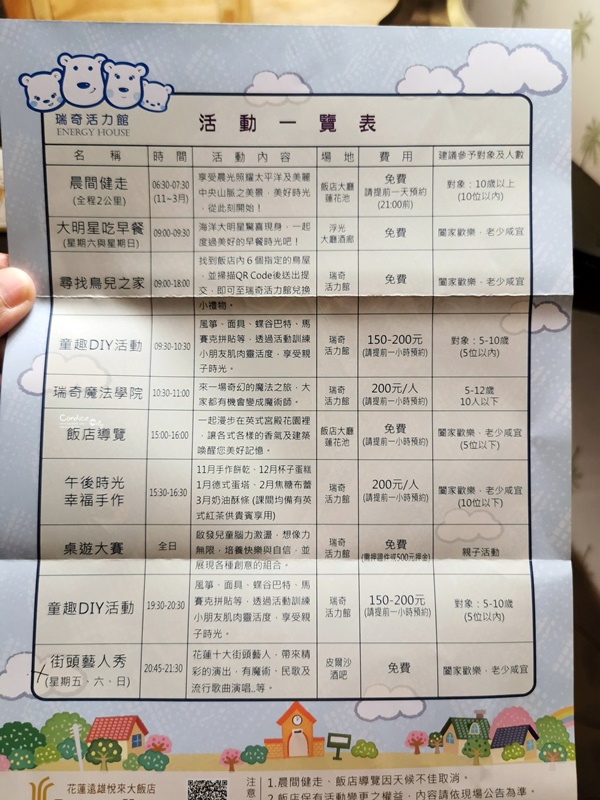 瑞奇活力館
ENERGY HOUSE
活動一覽表
名稱 時間 活動內容 場地 費用 建議參予對象及人數
晨間健走
(全程2公里)
06:30-07:30
(11~3月)
享受晨光照耀太平洋及美麗
中央山脈之美景,美好時光
,從此刻開始!
飯店大廳
蓮花池
免費
請提前一天預約
(21:00前)
對象:10歲以上
(10位以內)
大明星吃早餐
(星期六與星期日)
09:00-09:30
海洋大明星驚喜現身,一起
度過美好的早餐時光吧!
浮光
大廳酒廊
免費
闔家歡樂,老少咸宜
尋找鳥兒之家
09:00-18:00
找到飯店內6個指定的鳥屋
,並掃描QR Code後送出提
交,即可至瑞奇活力館兌換
小禮物。
瑞奇
活力館
免費
闔家歡樂,老少咸宜
童趣DIY活動
09:30-10:30
風箏、面具、蝶谷巴特、馬
賽克拼貼等,透過活動訓練
小朋友肌肉靈活度,享受親
子時光。
瑞奇
活力館
150-200元
(請提前一小時預約)
對象:5-10歲
(5位以內)
瑞奇魔法學院
10:30-11:00
來一場奇幻的魔法之旅,大
家都有機會變成魔術師。
瑞奇
活力館
200元/人
(請提前一小時預約)
5-12歲
10人以下
飯店導覽
15:00-16:00
一起漫步在英式宮殿花園裡
,讓各式各樣的香氣及建築
喚醒您美好記憶。
飯店大廳
蓮花池
免費
(請提前一小時預約)
闔家歡樂,老少咸宜
(5位以下)
午後時光
幸福手作
15:30-16:30
11月手作餅乾、12月杯子蛋糕
1月德式蛋塔、2月焦糖布蕾
3月奶油酥條 (課間均備有英
式紅茶供貴賓享用)
瑞奇
活力館
200元/人
(請提前一小時預約)
闔家歡樂,老少咸宜
(10位以下)
桌遊大賽
全日
啟發兒童腦力激盪,想像力
無限,培養快樂與自信,並
展現各種創意的組合。
瑞奇
活力館
免費
(需押證件或500元押金)
親子活動
童趣DIY活動
19:30-20:30
風箏、面具、蝶谷巴特、馬
賽克拼貼等,透過活動訓練
小朋友肌肉靈活度,享受親
子時光。
瑞奇
活力館
150-200元
(請提前一小時預約)
對象:5-10歲
(5位以內)
街頭藝人秀
(星期五、六、日)
20:45-21:30
花蓮十大街頭藝人,帶來精
彩的演出,有魔術、民歌及
流行歌曲演唱..等。
皮爾沙
酒吧
免費
闔家歡樂,老少咸宜
花蓮遠雄悅來大飯店
注意
1.晨間健走、飯店導覽因天候不佳取消。
2.飯店保有活動變更之權益,內容請依現場公告為準。